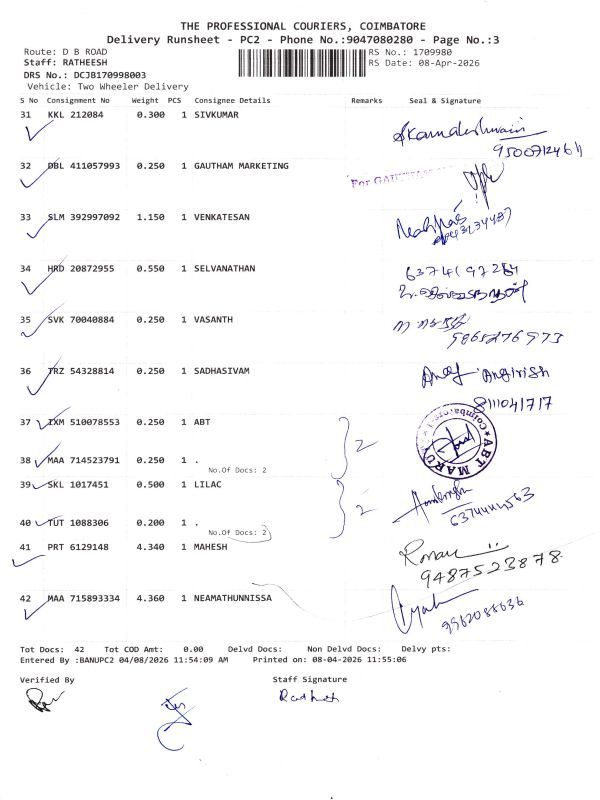 THE PROFESSIONAL COURIERS, COIMBATORE
Delivery Runsheet - PC2 - Phone No.:9047080280 - Page No.:3
Route: D B ROAD RS No.: 1709980
Staff: RATHEESH RS Date: 08-Apr-2026
DRS No.: DCJB170998003
Vehicle: Two Wheeler Delivery
S No Consignment No Weight PCS Consignee Details Remarks Seal & Signature
31 KKL 212084 0.300 1 SIVKUMAR
32 DBL 411057993 0.250 1 GAUTHAM MARKETING
33 SLM 392997092 1.150 1 VENKATESAN
34 HRD 20872955 0.550 1 SELVANATHAN
35 SVK 70040884 0.250 1 VASANTH
9865276973
36 TRZ 54328814 0.250 1 SADHASIVAM
8111041717
37 IXM 510078553 0.250 1 ABT 2
ABT MARU
38 MAA 714523791 0.250 1 .
No.Of Docs: 2
39 SKL 1017451 0.500 1 LILAC 2
40 TUT 1088306 0.200 1 .
No.Of Docs: 2
41 PRT 6129148 4.340 1 MAHESH
9487523878
42 MAA 715893334 4.360 1 NEAMATHUNNISSA
9962088636
Tot Docs: 42 Tot COD Amt: 0.00 Delvd Docs: Non Delvd Docs: Delvy pts:
Entered By :BANUPC2 04/08/2026 11:54:09 AM Printed on: 08-04-2026 11:55:06
Verified By Staff Signature
Ratheesh